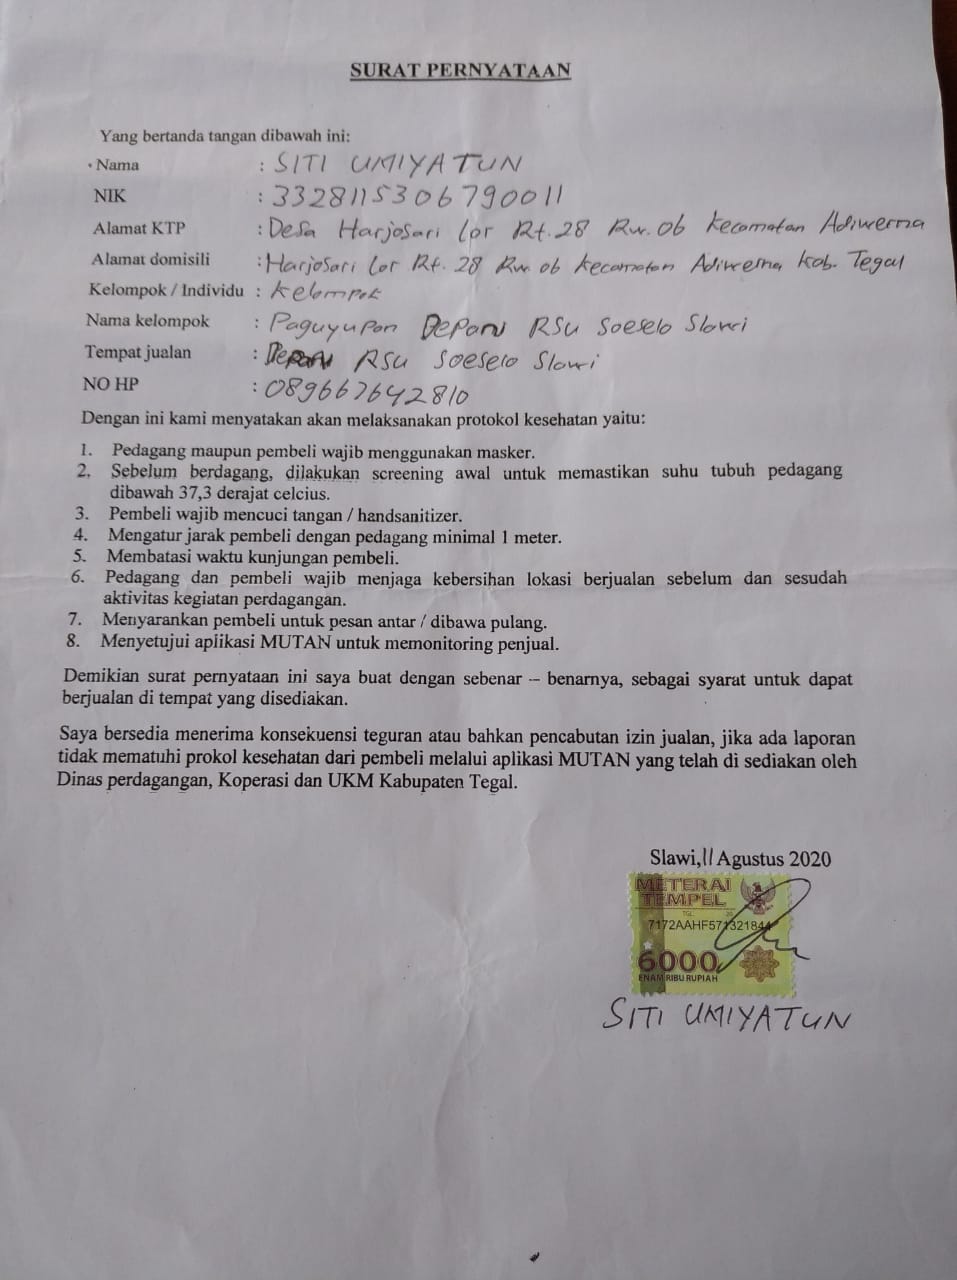 SURAT PERNYATAAN
Yang bertanda tangan dibawah ini:
Nama : SITI UMIYATUN
NIK : 3328115306790011
Alamat KTP : Desa Harjosari Lor Rt.28 Rw.06 Kecamatan Adiwerna
Alamat domisili : Harjosari Lor Rt. 28 Rw 06 Kecamatan Adiwerna Kab. Tegal
Kelompok / Individu : Kelompok
Nama kelompok : Paguyupan Depan RSU Soeselo Slawi
Tempat jualan : Depan RSU Soeselo Slawi
NO HP : 089667642810
Dengan ini kami menyatakan akan melaksanakan protokol kesehatan yaitu:
1. Pedagang maupun pembeli wajib menggunakan masker.
2. Sebelum berdagang, dilakukan screening awal untuk memastikan suhu tubuh pedagang
dibawah 37,3 derajat celcius.
3. Pembeli wajib mencuci tangan / handsanitizer.
4. Mengatur jarak pembeli dengan pedagang minimal 1 meter.
5. Membatasi waktu kunjungan pembeli.
6. Pedagang dan pembeli wajib menjaga kebersihan lokasi berjualan sebelum dan sesudah
aktivitas kegiatan perdagangan.
7. Menyarankan pembeli untuk pesan antar / dibawa pulang.
8. Menyetujui aplikasi MUTAN untuk memonitoring penjual.
Demikian surat pernyataan ini saya buat dengan sebenar – benarnya, sebagai syarat untuk dapat
berjualan di tempat yang disediakan.
Saya bersedia menerima konsekuensi teguran atau bahkan pencabutan izin jualan, jika ada laporan
tidak mematuhi prokol kesehatan dari pembeli melalui aplikasi MUTAN yang telah di sediakan oleh
Dinas perdagangan, Koperasi dan UKM Kabupaten Tegal.
Slawi, 11 Agustus 2020
METERAI
TEMPEL
TGL. 20
7172AAHF571321844
6000
ENAM RIBU RUPIAH
SITI UMIYATUN